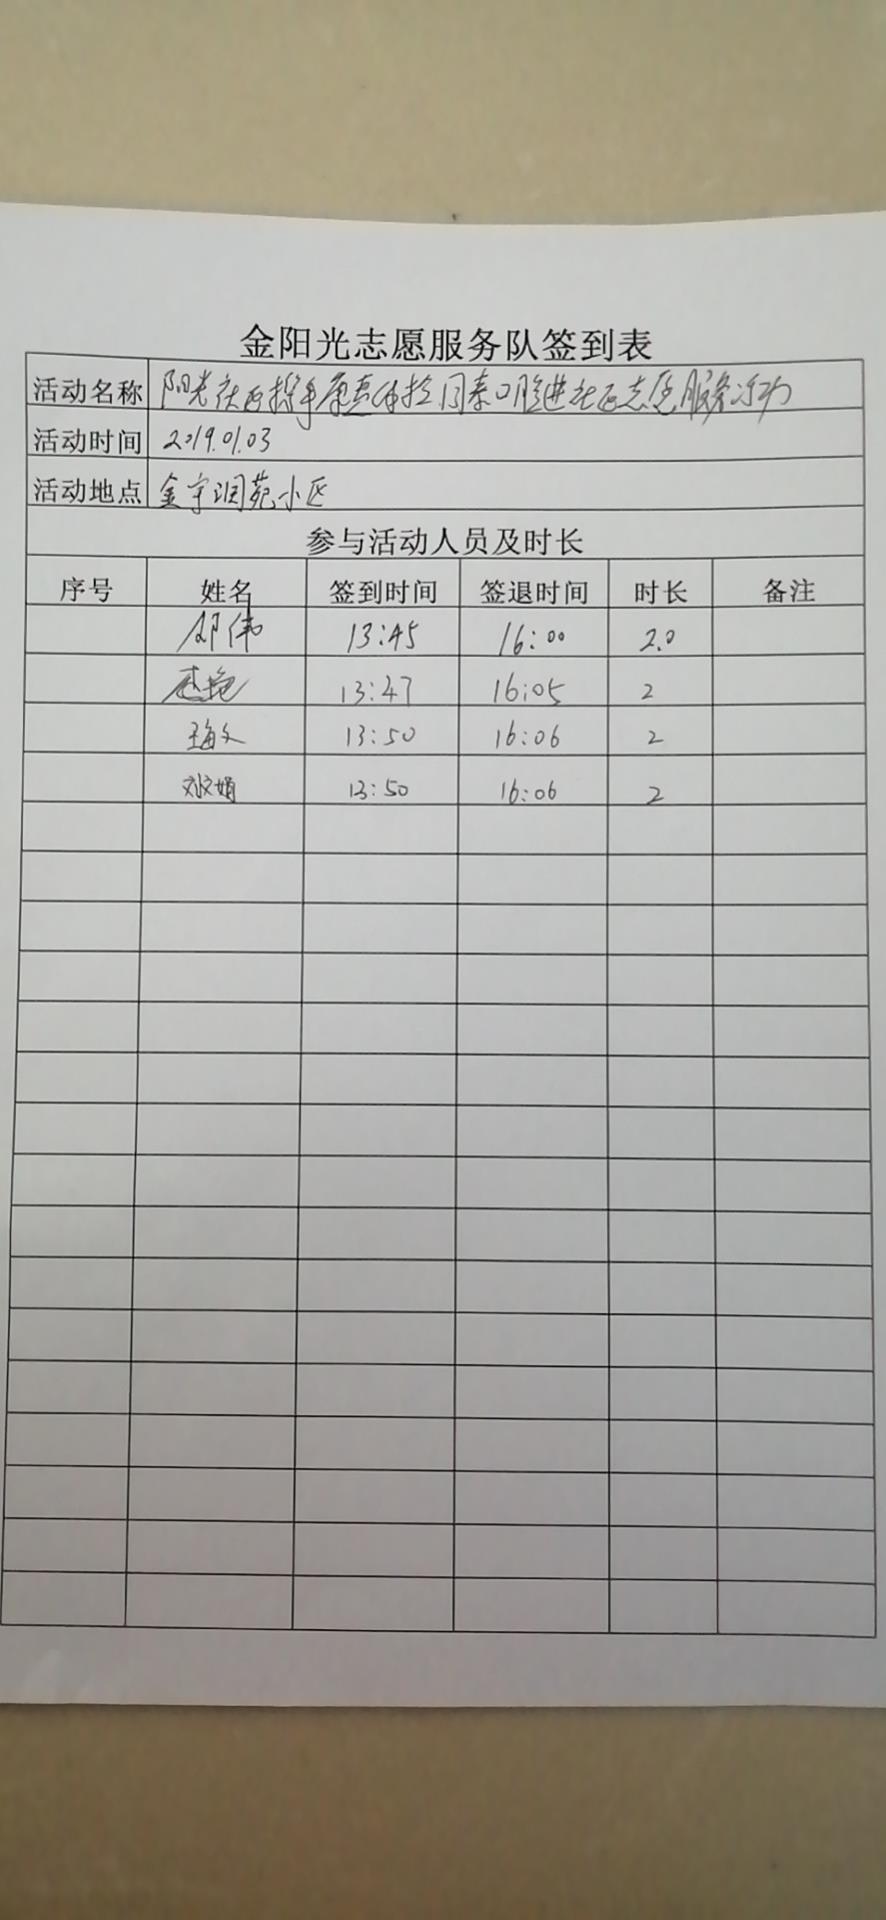 金阳光志愿服务队签到表
活动名称 阳光社区携手康惠体检同泰口腔进社区志愿服务活动
活动时间 2019.01.03
活动地点 金宇润苑小区
参与活动人员及时长
序号 姓名 签到时间 签退时间 时长 备注
邵伟 13:45 16:00 2.0
艳 13:47 16:05 2
王海文 13:50 16:06 2
刘文娟 13:50 16:06 2